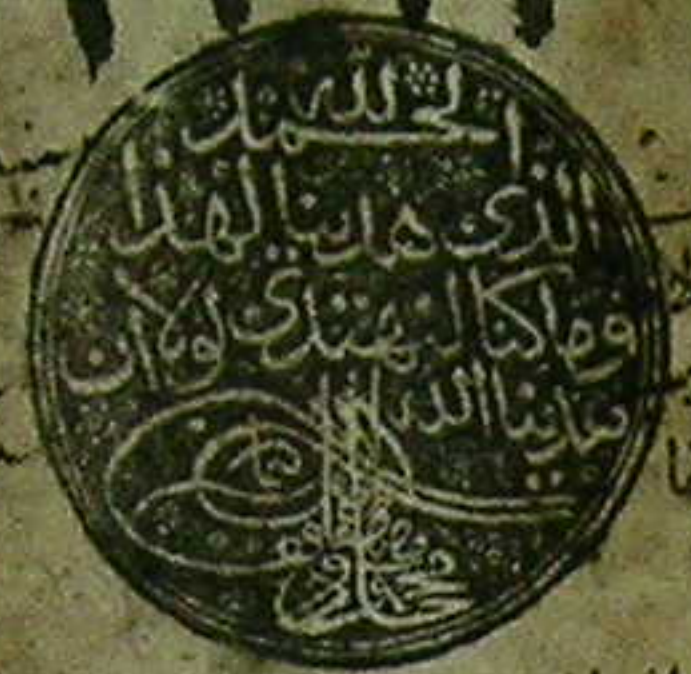 الحمد لله
الذي هدينا لهذا
وما كنا لنهتدي لولا ان
هدينا الله
محمود